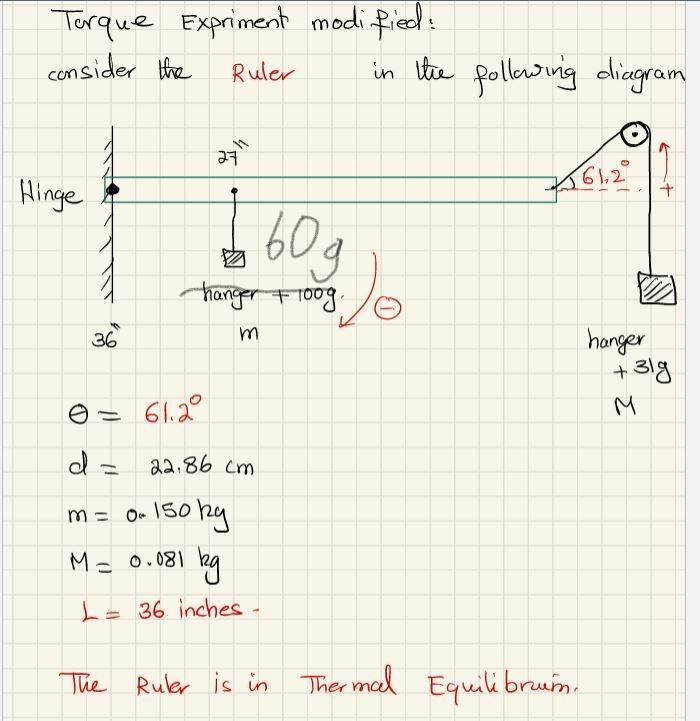 Torque Expriment modified:
consider the Ruler in the following diagram
27"
61.2°
+
Hinge
60g
hanger + 100g.
-
36"
m
hanger
+ 31g
M
θ = 61.2°
d = 22.86 cm
m = 0.150 kg
M = 0.081 kg
L = 36 inches -
The Ruler is in Thermal Equilibruim.